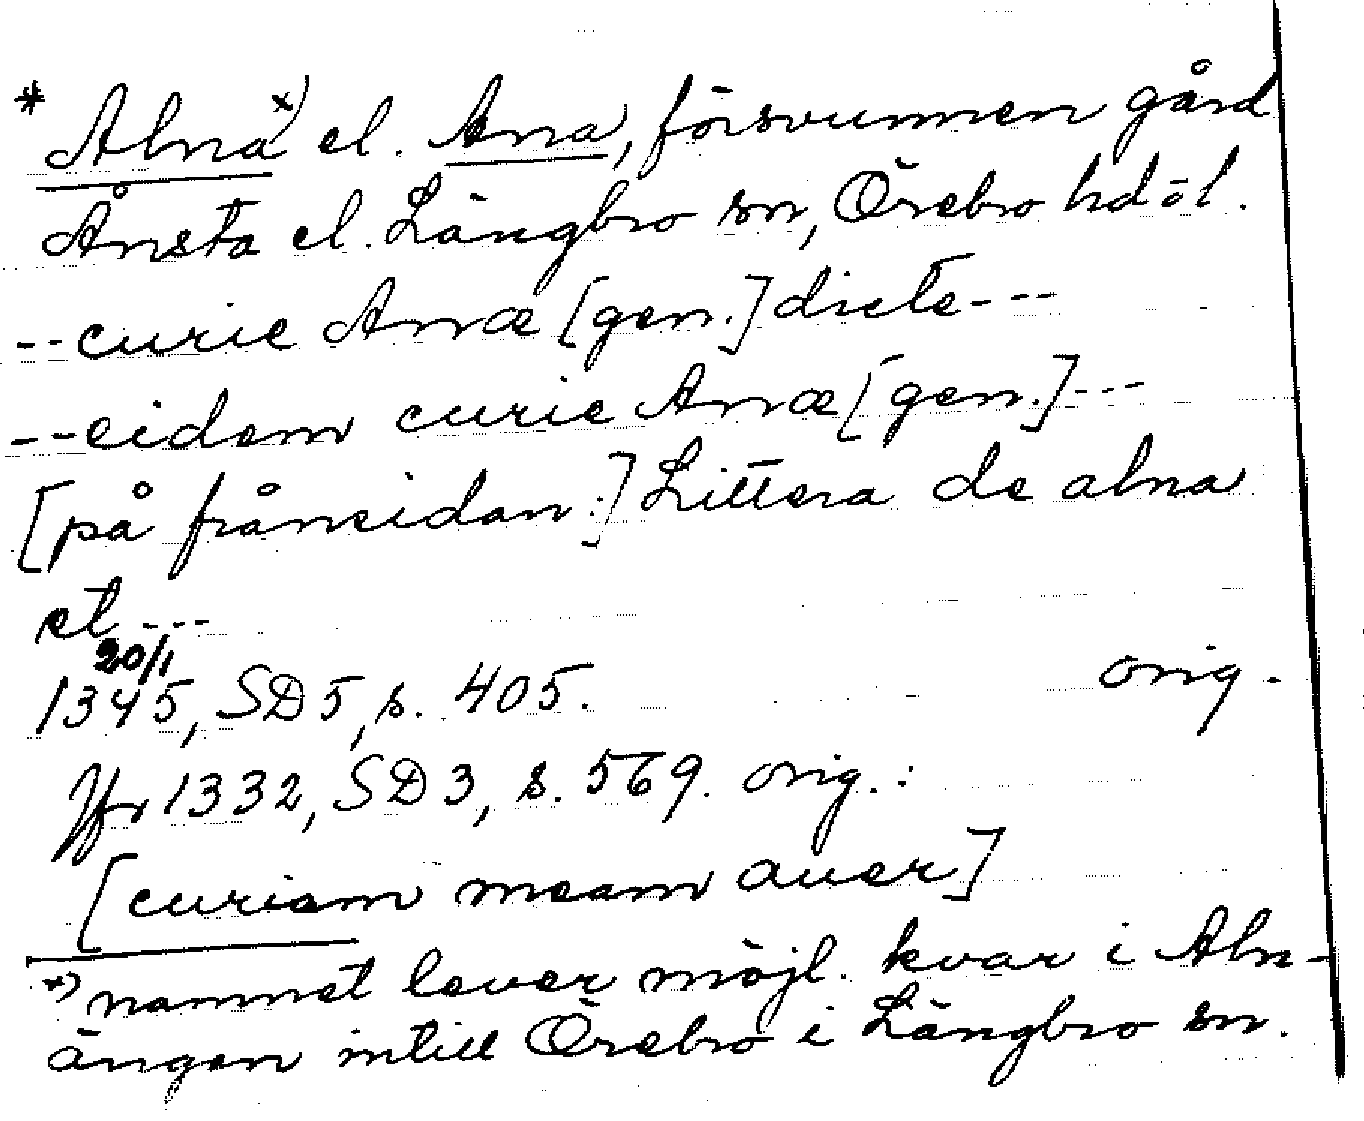 * Alna x) el. Ana, försvunnen gård
Ånsta el. Längbro sn, Örebro hd öl.
--curie Anæ [gen.] dicte---
--eidem curie Anæ [gen.]---
[på frånsidan:] Littera de alna
et---
20/1
1345, SD 5, s. 405. orig.
Jfr 1332, SD 3, s. 569. orig.:
[curiam meam auer]
x) namnet lever möjl. kvar i Aln-
ängen intill Örebro i Längbro sn.